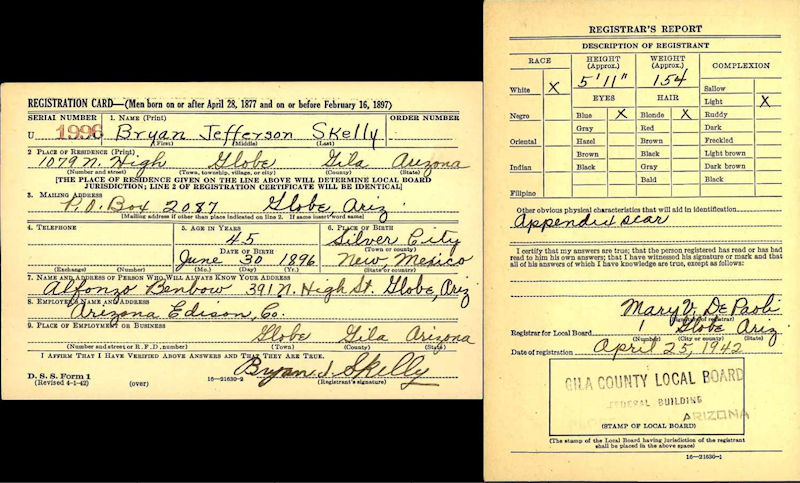 REGISTRATION CARD—(Men born on or after April 28, 1877 and on or before February 16, 1897)
SERIAL NUMBER
1. NAME (Print)
ORDER NUMBER
U 1996 Bryan Jefferson Skelly
(First) (Middle) (Last)
2. PLACE OF RESIDENCE (Print)
1079 N. High Globe Gila Arizona
(Number and street) (Town, township, village, or city) (County) (State)
[THE PLACE OF RESIDENCE GIVEN ON THE LINE ABOVE WILL DETERMINE LOCAL BOARD
JURISDICTION; LINE 2 OF REGISTRATION CERTIFICATE WILL BE IDENTICAL]
3. MAILING ADDRESS
P.O. Box 2087 Globe, Ariz
[Mailing address if other than place indicated on line 2. If same insert word same]
4. TELEPHONE
5. AGE IN YEARS
6. PLACE OF BIRTH
45 Silver City
DATE OF BIRTH
(Town or county)
June 30 1896 New Mexico
(Exchange) (Number) (Mo.) (Day) (Yr.) (State or country)
7. NAME AND ADDRESS OF PERSON WHO WILL ALWAYS KNOW YOUR ADDRESS
Alfonzo Benbow 391 N. High St. Globe, Ariz
8. EMPLOYER'S NAME AND ADDRESS
Arizona Edison, Co.
9. PLACE OF EMPLOYMENT OR BUSINESS
Globe Gila Arizona
(Number and street or R. F. D. number) (Town) (County) (State)
I AFFIRM THAT I HAVE VERIFIED ABOVE ANSWERS AND THAT THEY ARE TRUE.
Bryan J. Skelly
D. S. S. Form 1
(Revised 4-1-42) (over) 16—21630-2 (Registrant's signature)
REGISTRAR'S REPORT
DESCRIPTION OF REGISTRANT
RACE
HEIGHT (Approx.)
WEIGHT (Approx.)
COMPLEXION
5' 11" 154
White X
Sallow
EYES
HAIR
Light X
Negro
Blue X
Blonde X
Ruddy
Gray
Red
Dark
Oriental
Hazel
Brown
Freckled
Brown
Black
Light brown
Indian
Black
Gray
Dark brown
Bald
Black
Filipino
Other obvious physical characteristics that will aid in identification
Appendix scar
I certify that my answers are true; that the person registered has read or has had
read to him his own answers; that I have witnessed his signature or mark and that
all of his answers of which I have knowledge are true, except as follows:
Mary V. De Paoli
(Signature of registrar)
Registrar for Local Board 1 Globe Ariz
(Number) (City or county) (State)
Date of registration April 25, 1942
GILA COUNTY LOCAL BOARD
FEDERAL BUILDING
ARIZONA
(STAMP OF LOCAL BOARD)
(The stamp of the Local Board having jurisdiction of the registrant
shall be placed in the above space)
16—21630-1